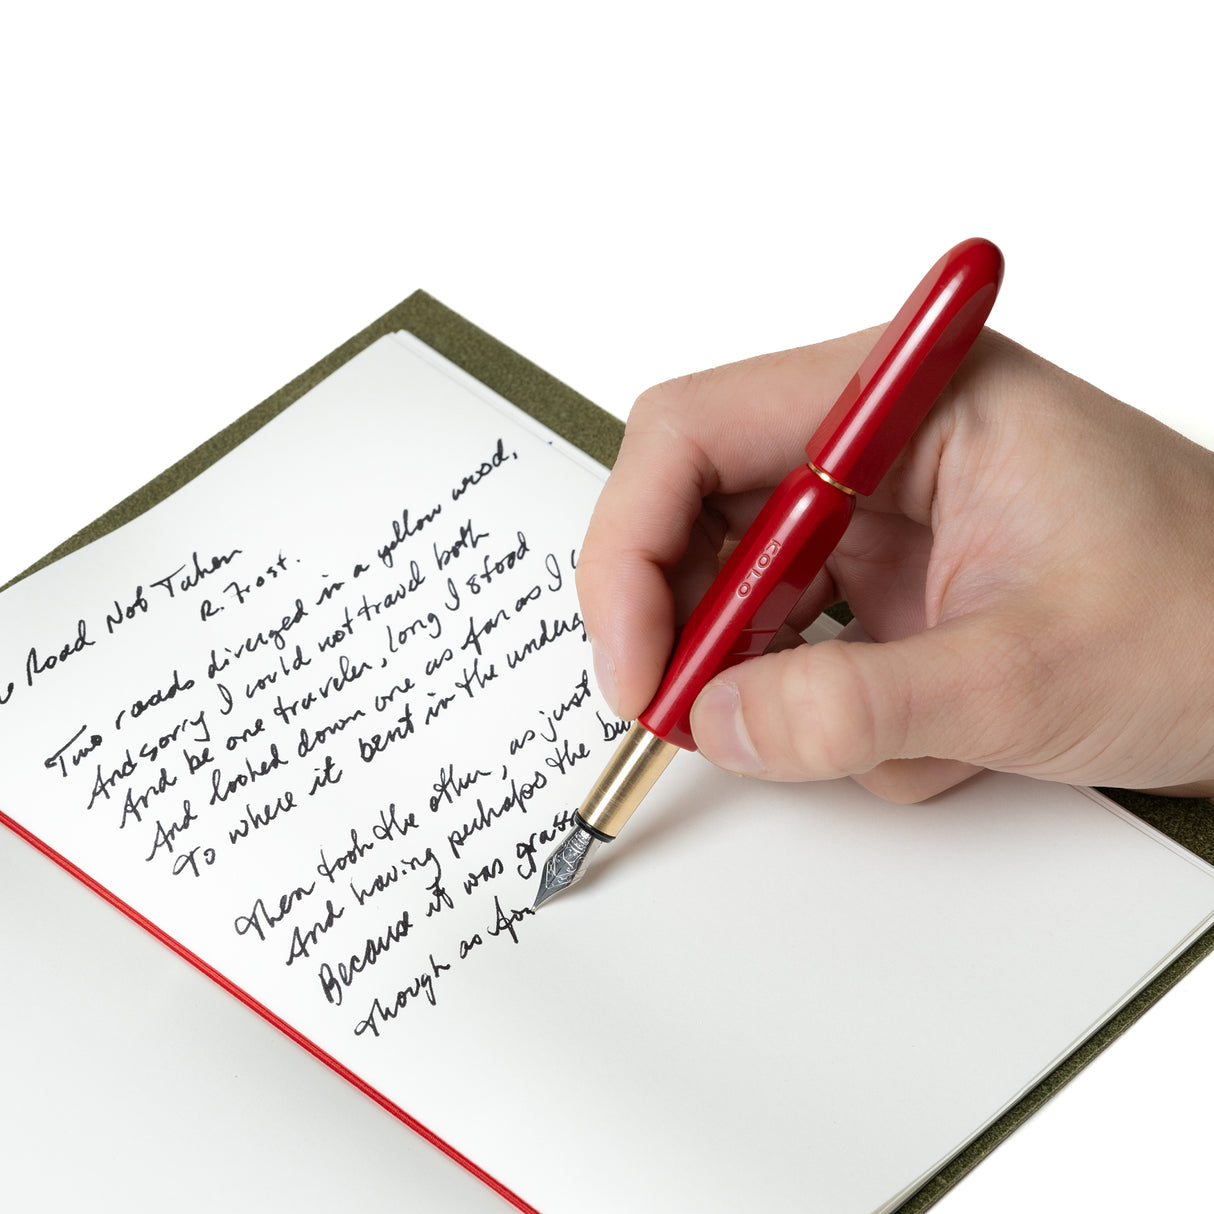 Road Not Taken
R. Frost.
Two roads diverged in a yellow wood,
And sorry I could not travel both
And be one traveler, long I stood
And looked down one as far as I
To where it bent in the underg
Then took the other, as just
And having perhaps the
Because it was grass
Though as for
KOLO